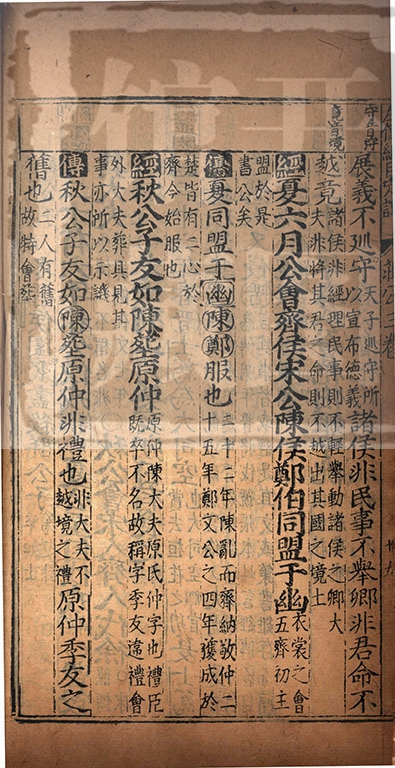 守音狩
竟音境
展義不巡守天子巡守所以宣布德義諸侯非民事不舉卿非君命不
越竟諸侯非經理民事則不輕舉動諸侯之卿大夫非將其君之命則不越出其國之境土
經夏六月公會齊侯宋公陳侯鄭伯同盟于幽衣裳之會五齊初主
盟於是書公矣
傳夏同盟于幽陳鄭服也二十二年陳亂而齊納敬仲二十五年鄭文公之四年獲成於
楚皆有二心於齊今始服也
經秋公子友如陳葬原仲原仲陳大夫原氏仲字也禮臣既卒不名故稱字季友違禮會
外大夫葬具見其事亦所以示譏
傳秋公子友如陳葬原仲非禮也非大夫不越境之禮原仲季友之
舊也二人有舊故特會葬